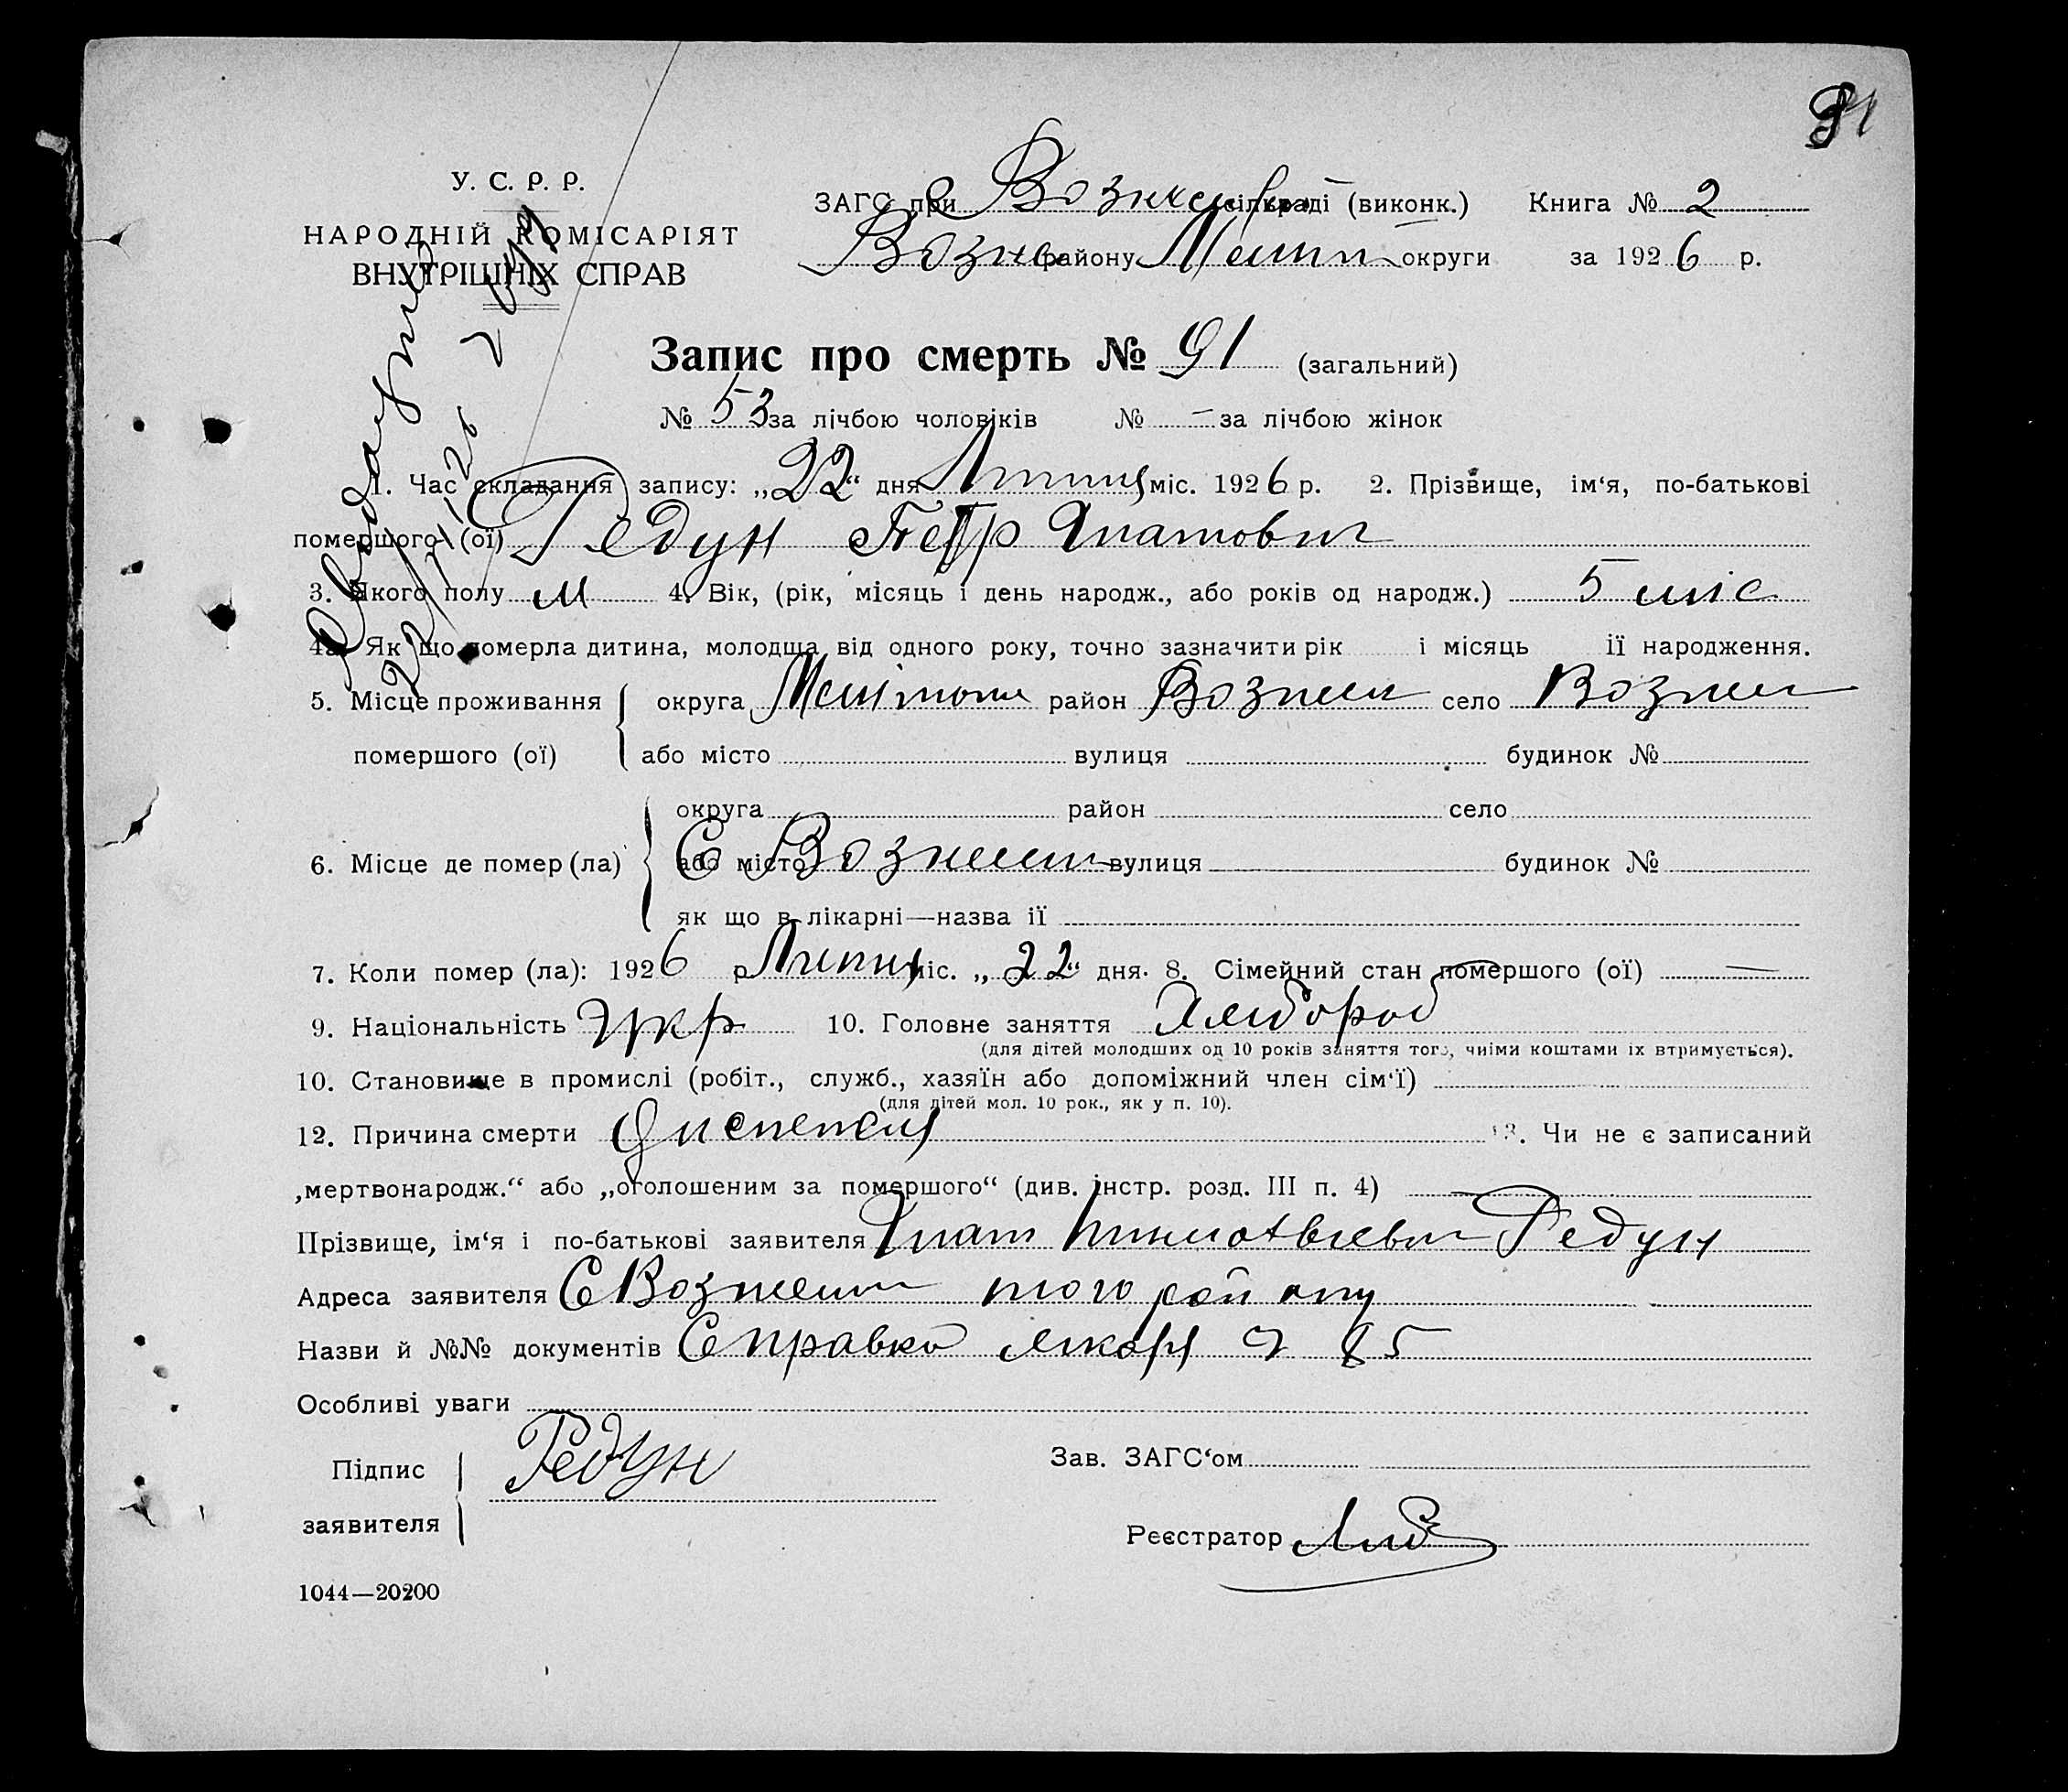 91
У. С. Р. Р.
НАРОДНІЙ КОМІСАРІЯТ
ВНУТРІШНІХ СПРАВ
ЗАГС при Вознесен сільраді (виконк.) Книга № 2
Возне району Меліт округи за 1926 р.
Запис про смерть № 91 (загальний)
№ 53 за лічбою чоловіків № — за лічбою жінок
1. Час складання запису: „22“ дня Липня міс. 1926 р. 2. Прізвище, ім‘я, по-батькові
помершого (ої) Редун Петр Ипатович
3. Якого полу м 4. Вік, (рік, місяць і день народж., або років од народж.) 5 міс
4а. Як що померла дитина, молодща від одного року, точно зазначити рік і місяць ії народження.
5. Місце проживання округа Мелітоп район Вознесен село Вознесен
помершого (ої) або місто вулиця будинок №
округа район село
6. Місце де помер (ла) або місто С Вознесен вулиця будинок №
як що в лікарні—назва ії
7. Коли помер (ла): 1926 р Липня міс. „22“ дня. 8. Сімейний стан помершого (ої) —
9. Національність Укр 10. Головне заняття Хлібороб
(для дітей молодших од 10 років заняття того, чиіми коштами іх втримується).
10. Становище в промислі (робіт., служб., хазяїн або допоміжний член сім‘ї)
(для дітей мол. 10 рок., як у п. 10).
12. Причина смерти Диспепсия 13. Чи не є записаний
„мертвонародж.“ або „оголошеним за помершого“ (див. інстр. розд. III п. 4) —
Прізвище, ім‘я і по-батькові заявителя Ипат Редун
Адреса заявителя С Вознесен того району
Назви й №№ документів Справка лікаря 85
Особливі уваги
Підпис заявителя Редун
Зав. ЗАГС‘ом
Реєстратор
1044—20200